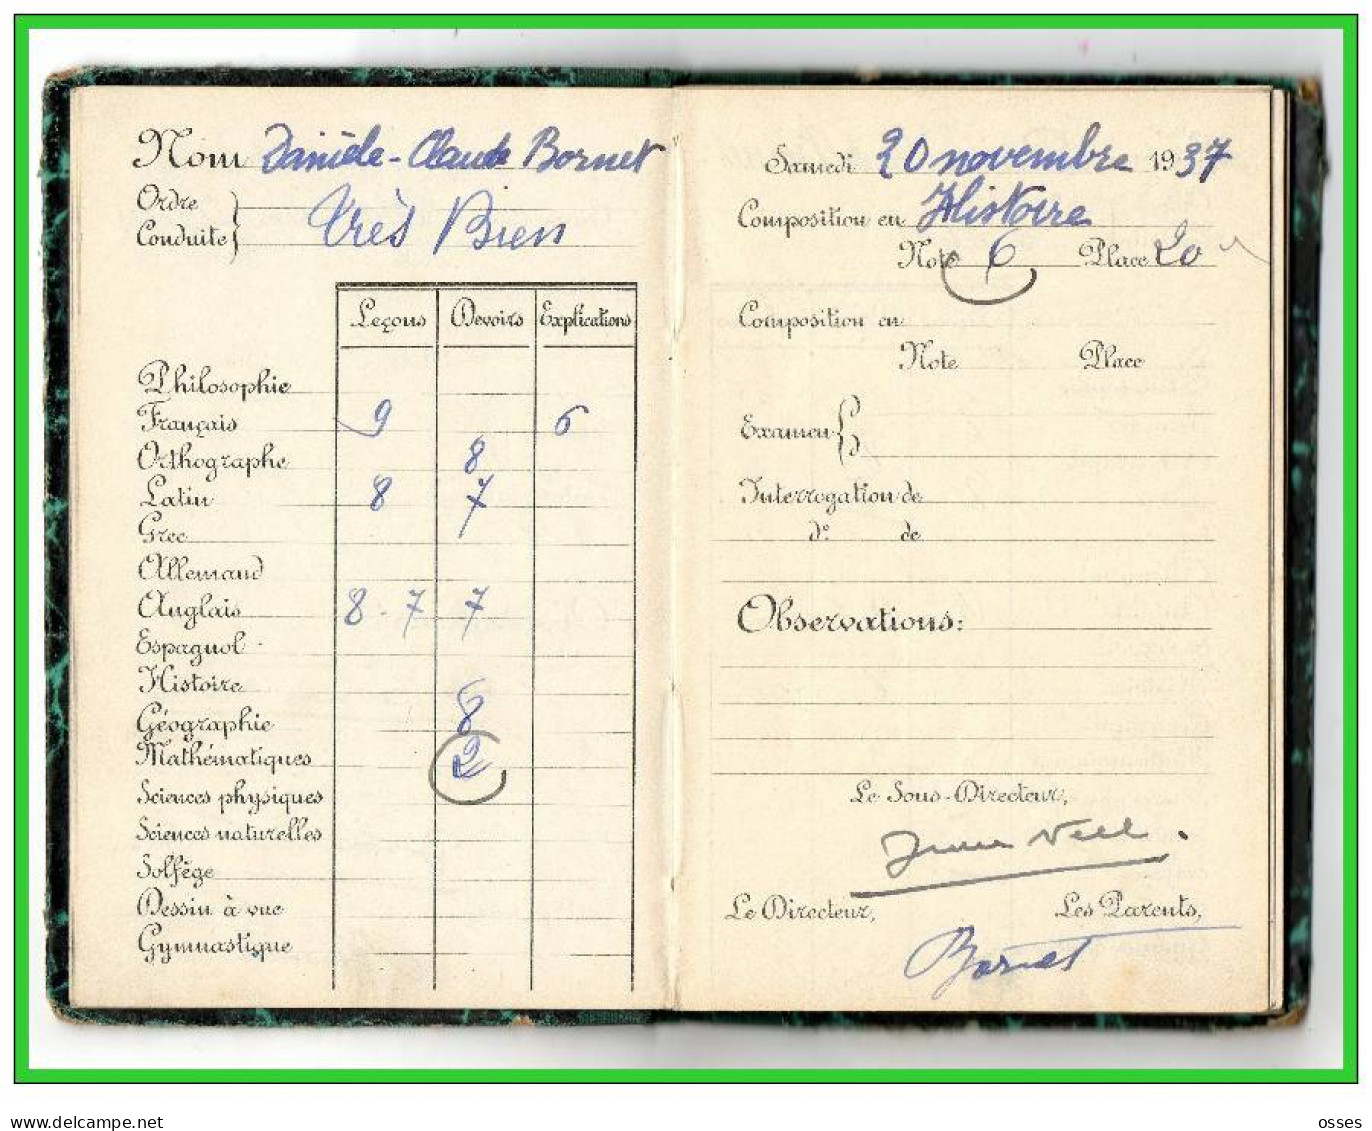 Nom Danièle-Claude Bornet
Ordre
Conduite
Très Bien
Leçons Devoirs Explications
Philosophie
Français 9 6
Orthographe 8
Latin 8 7
Grec
Allemand
Anglais 8 - 7 7
Espagnol
Histoire
Géographie 8
Mathématiques 2
Sciences physiques
Sciences naturelles
Solfège
Dessin à vue
Gymnastique
Samedi 20 novembre 1937
Composition en Histoire
Note 6 Place 20
Composition en
Note Place
Examen
Interrogation de
d° de
Observations:
Le Sous-Directeur,
Le Directeur,
Les Parents,
Bornet
delcampe.net
osses